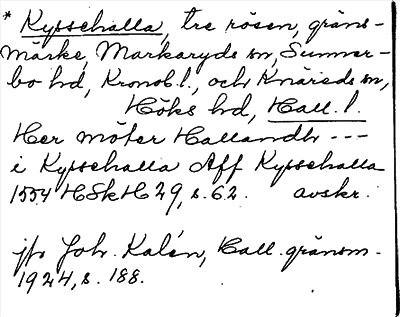 * Kypsehalla, tre rösen, gräns-
märke, Markaryds sn, Sunner-
bo hd, Kronob. l., och Knäreds sn,
Höks hd, Hall. l.
Her möter Hallandh ---
i Kypsehalla Aff Kypsehalla
1554 HSkH 29, s. 62. avskr.
jfr Joh. Kalén, Hall. gränsm.
1924, s. 188.